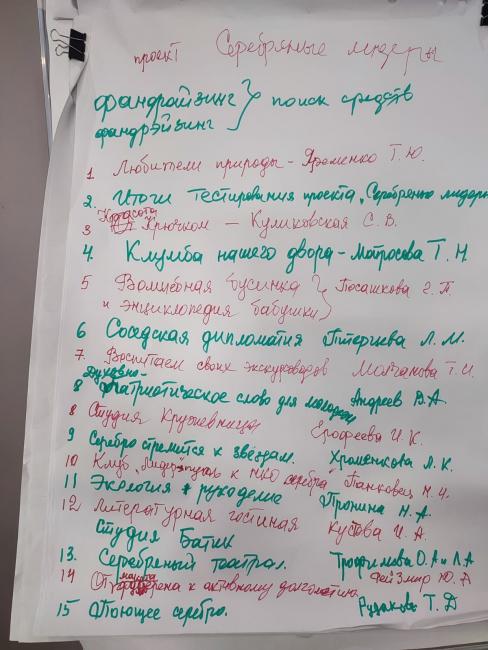 проект Серебряные лидеры
фандрайзинг } поиск средств
фандрэйзинг
1 Любители природы - Яременко Т.Ю.
2. Итоги тестирования проекта „Серебряные лидеры
3 Красота Крючком — Куликовская С.В.
4. Клумба нашего двора - Матросова Т.Н.
5 Волшебная бусинка } Посашкова Г.П.
и Энциклопедия бабушки
6 Соседская дипломатия Л.М.
7. Воспитаем своих экскурсоводов Молчанова Т.И.
8 Духовно-патриотическое слово для молодежи Андреев В.А.
8 Студия Кружевница Ерофеева И.К.
9 Серебро стремится к звёздам. Хроменкова Л.К.
10 Клуб „Лидер" к НКО серебра Панковец Н.И.
11 Экология + рукоделие Пронина Н.А.
12 Литературная гостиная Кустова И.А.
Студия Батик
13. Серебряный театрал. Трофимова О.А и Л.А
14 к активному долголетию. Ю.А
15 Поющее серебро. Рудакова Т.Д